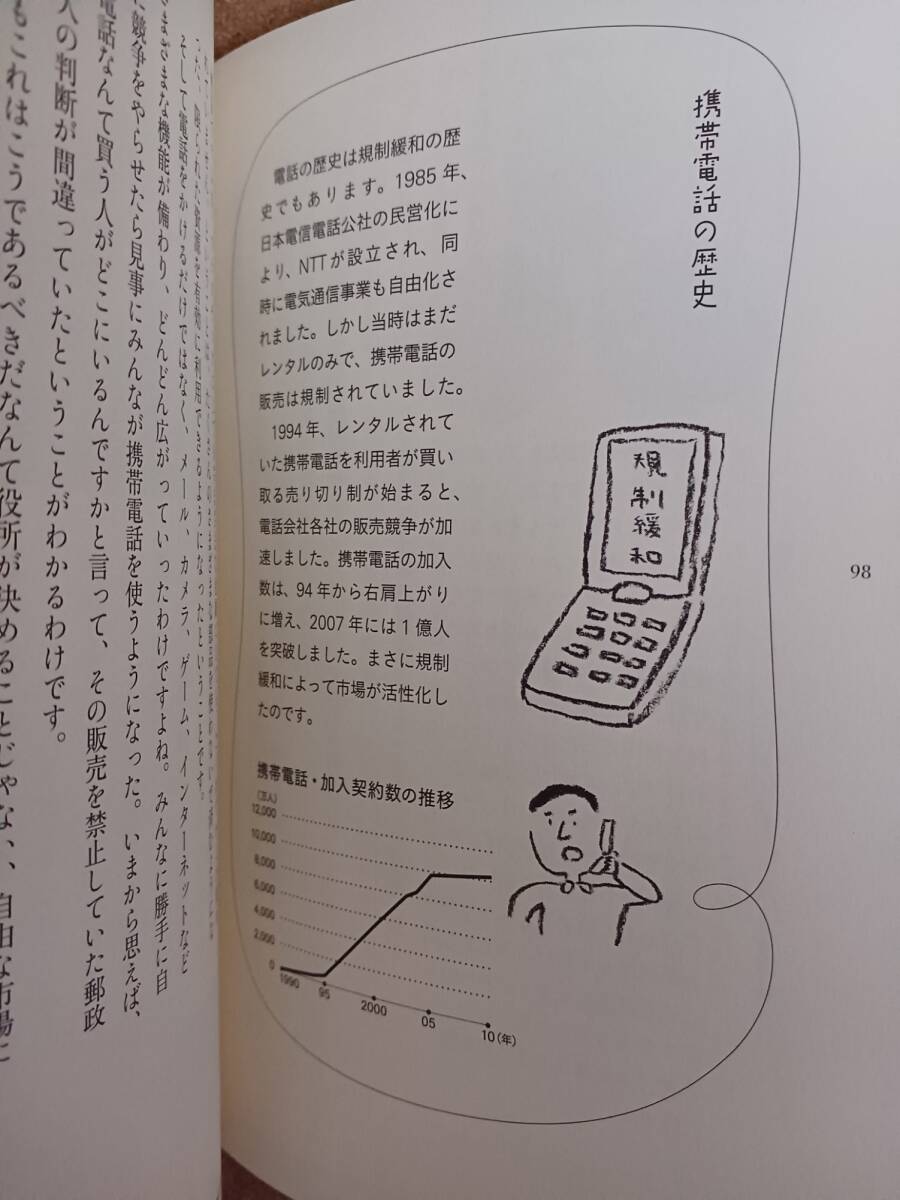 携帯電話の歴史
電話の歴史は規制緩和の歴
史でもあります。1985年、
日本電信電話公社の民営化に
より、NTTが設立され、同
時に電気通信事業も自由化さ
れました。しかし当時はまだ
レンタルのみで、携帯電話の
販売は規制されていました。
1994年、レンタルされて
いた携帯電話を利用者が買い
取る売り切り制が始まると、
電話会社各社の販売競争が加
速しました。携帯電話の加入
数は、94年から右肩上がり
に増え、2007年には1億人
を突破しました。まさに規制
緩和によって市場が活性化し
たのです。
規
制
緩
和
98
携帯電話・加入契約数の推移
(万人)
12,000
10,000
8,000
6,000
4,000
2,000
0
1990
95
2000
05
10(年)
有効に利用できるようになったということです。
そして電話をかけるだけではなく、メール、カメラ、ゲーム、インターネットなど
まざまな機能が備わり、どんどん広がっていったわけですよね。みんなに勝手に自
競争をやらせたら見事にみんなが携帯電話を使うようになった。いまから思えば、
電話なんて買う人がどこにいるんですかと言って、その販売を禁止していた郵政
人の判断が間違っていたということがわかるわけです。
もこれはこうであるべきだなんて役所が決めることじゃない、自由な市場に